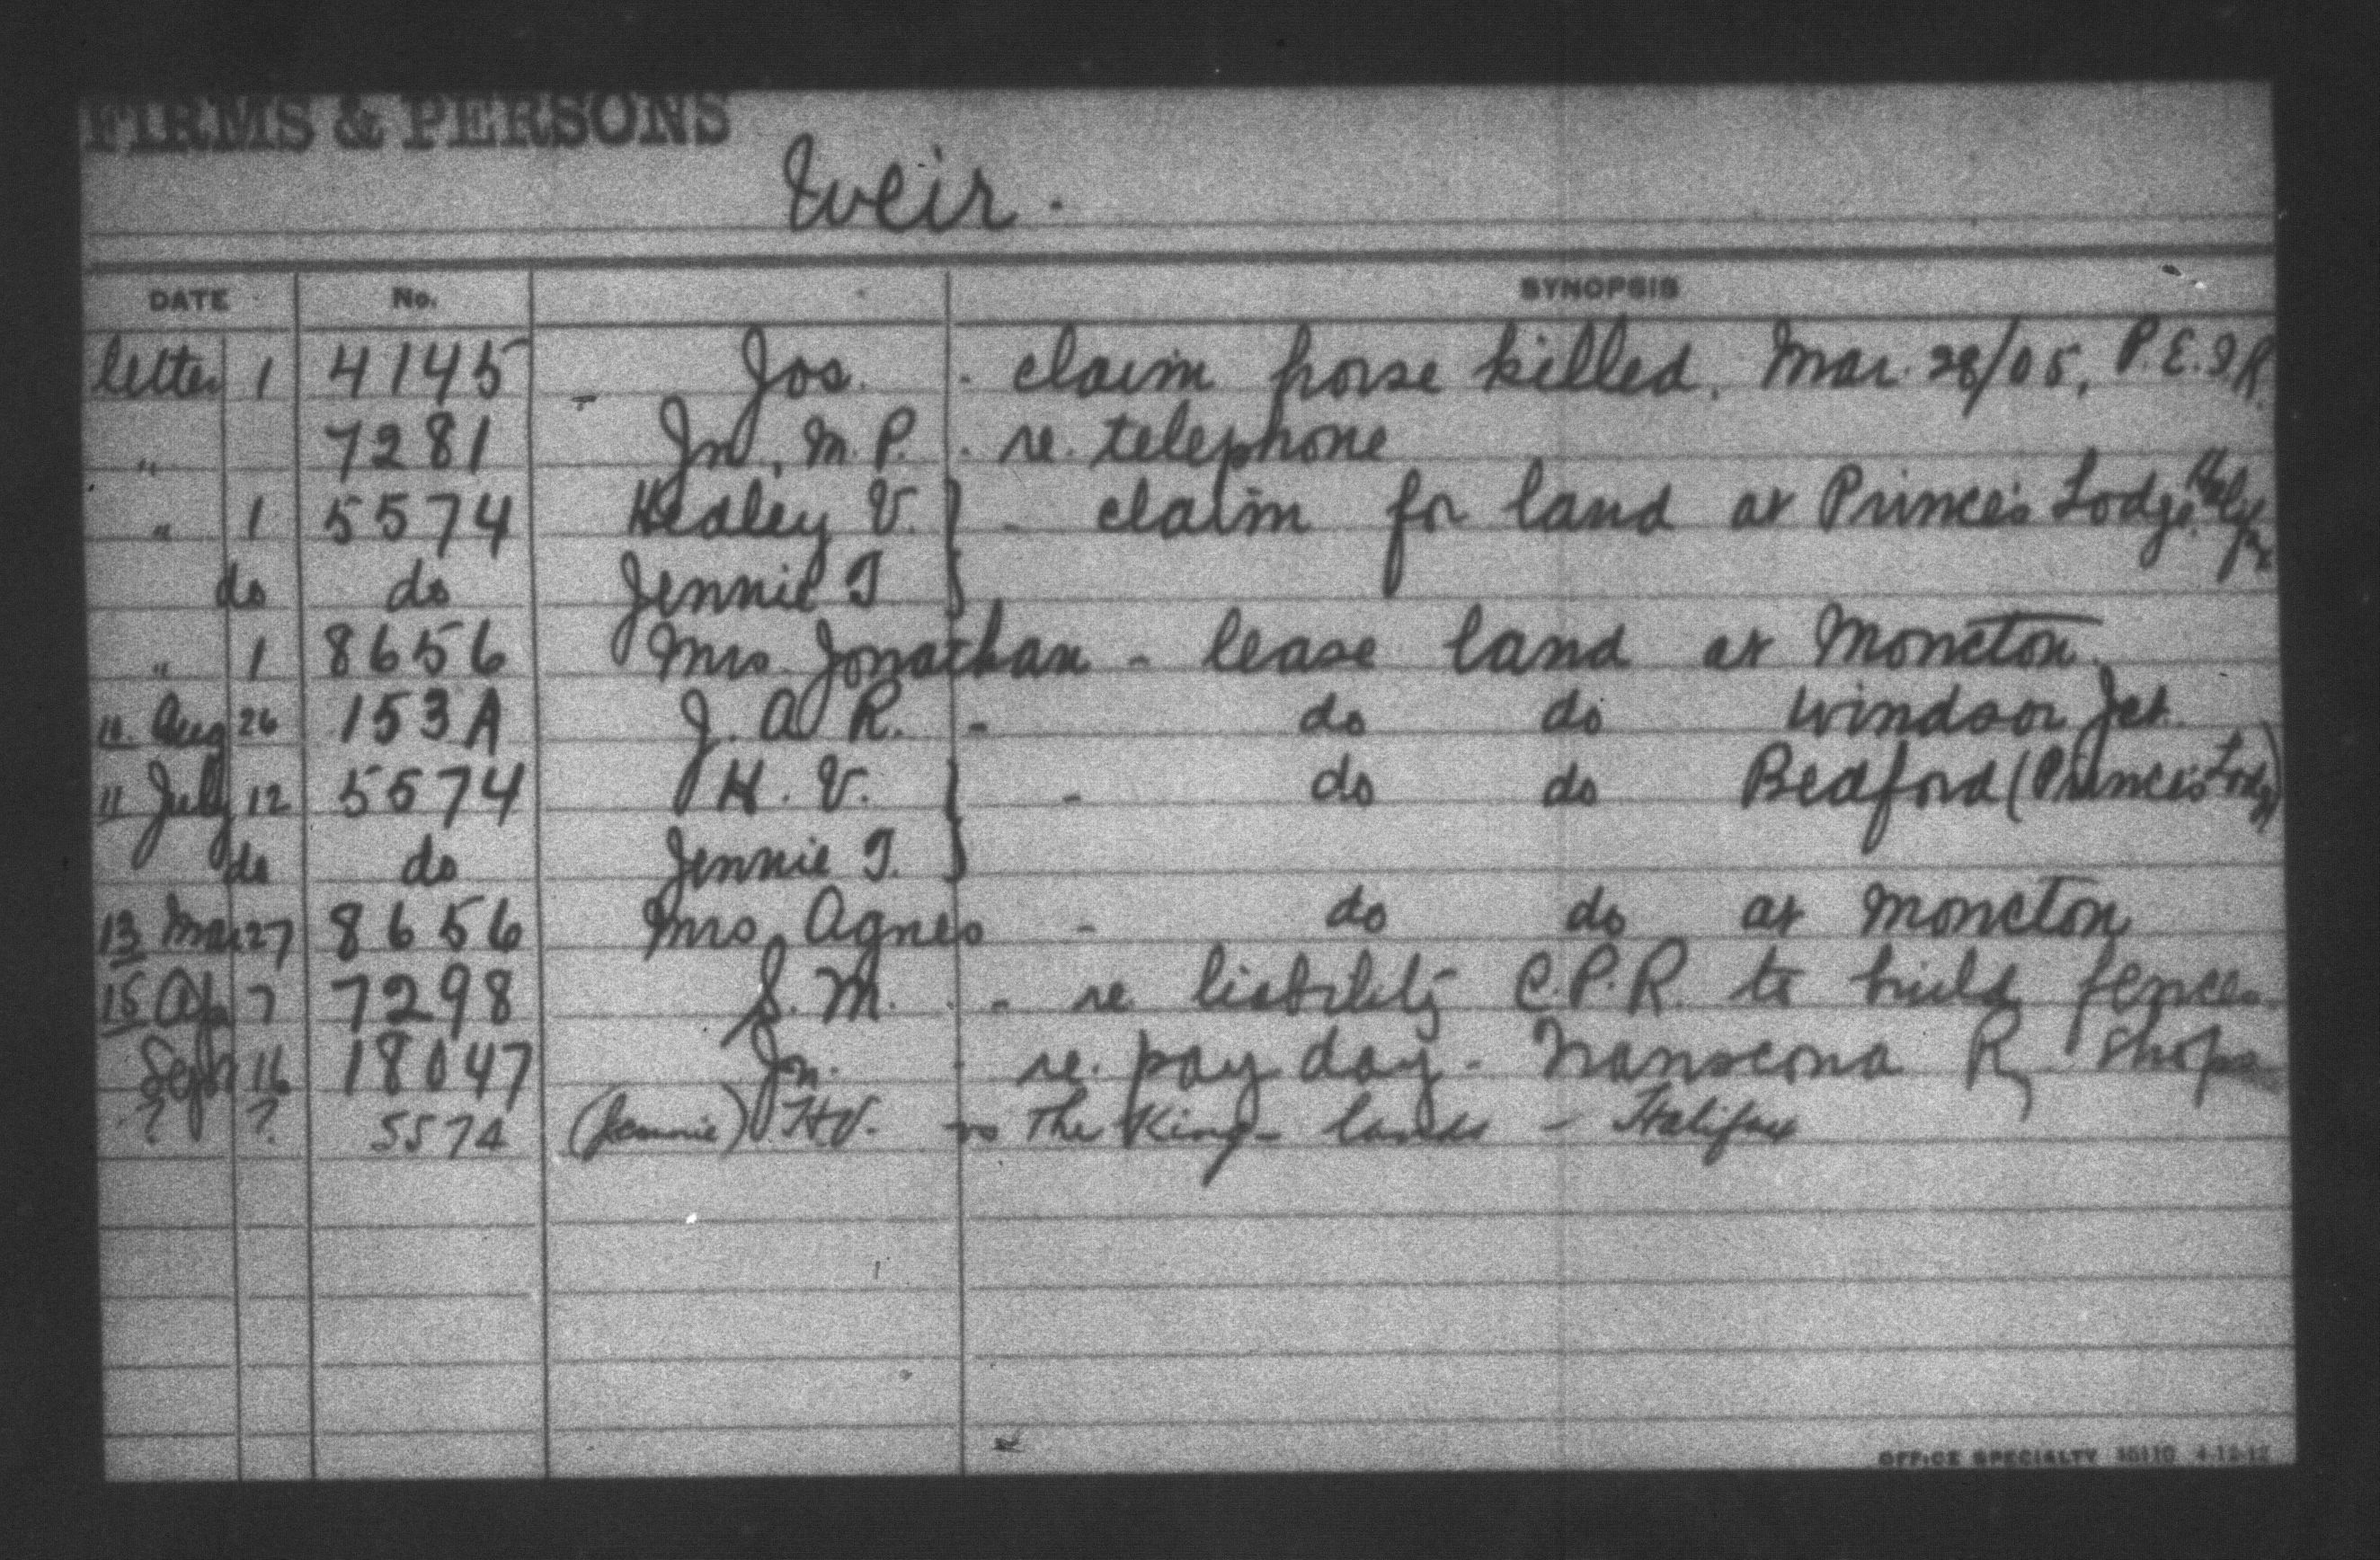 FIRMS & PERSONS
Weir.
DATE No. SYNOPSIS
letter 1 4145 - Jos. - claim horse killed, Mar. 28/05, P.E.I.R.
" 7281 Jn, M.P. - re. telephone
" 1 5574 Hedley V. } - claim for land at Prince's Lodge, Halifax
" do do Jennie T }
" 1 8656 Mrs. Jonathan - lease land at Moncton
Aug 26 153A J. A. R. - do do Windsor Jct.
11 July 12 5574 H. V. } - do do Bedford (Prince's Lodge)
do do Jennie T. }
13 Mar 27 8656 Mrs. Agnes - do do at Moncton
15 Ap 7 7298 S. M. - re liability C.P.R. to build fences
Sept 16 18047 Jn. - re. pay day - Transcona Ry Shops
? ? 5574 (Jennie) H.V. vs The King - lands - Halifax
OFFICE SPECIALTY 4-12-12